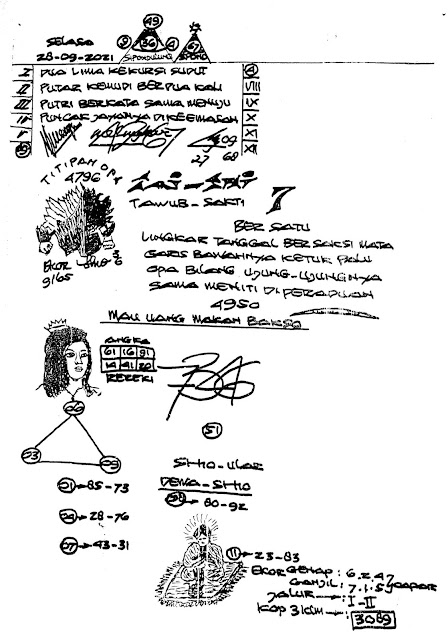 49
SELASA
9 36 4
67
28-09-2021
SIPENDULUNG
I DUA LIMA KEKURSI SUDUT
II PUTAR KEMUDI BERDUA KALI VIII
III PUTRI BERKATA SAMA MENUJU IX
IV PUNCAK JAYANYA DIKEEMASAN X
V XI
XII
09
27 68
TITIPAN OPA
4796
TAWUB-SAKTI 7
BERSATU
LINGKAR TANGGAL BERSAKSI MATA
GARIS BAWAHNYA KETUK PALU
OPA BILANG UJUNG-UJUNGNYA
SAMA MENITI DIPERADUAN
EKOR
9165
4950
MAU UANG MAKAN BAKSO
ANGKA
61 16 91
14 41 20
REZEKI
06
03 09
51
SHIO-ULAR
DEWA-SHIO
01 → 85-73
80-92
04 → 28-76
07 → 43-31
11 → 23-83
EKOR GENAP : 6.2.4
GANJIL : 7.1.5
JALUR → : I-II
KOP 3 KIM : 3089